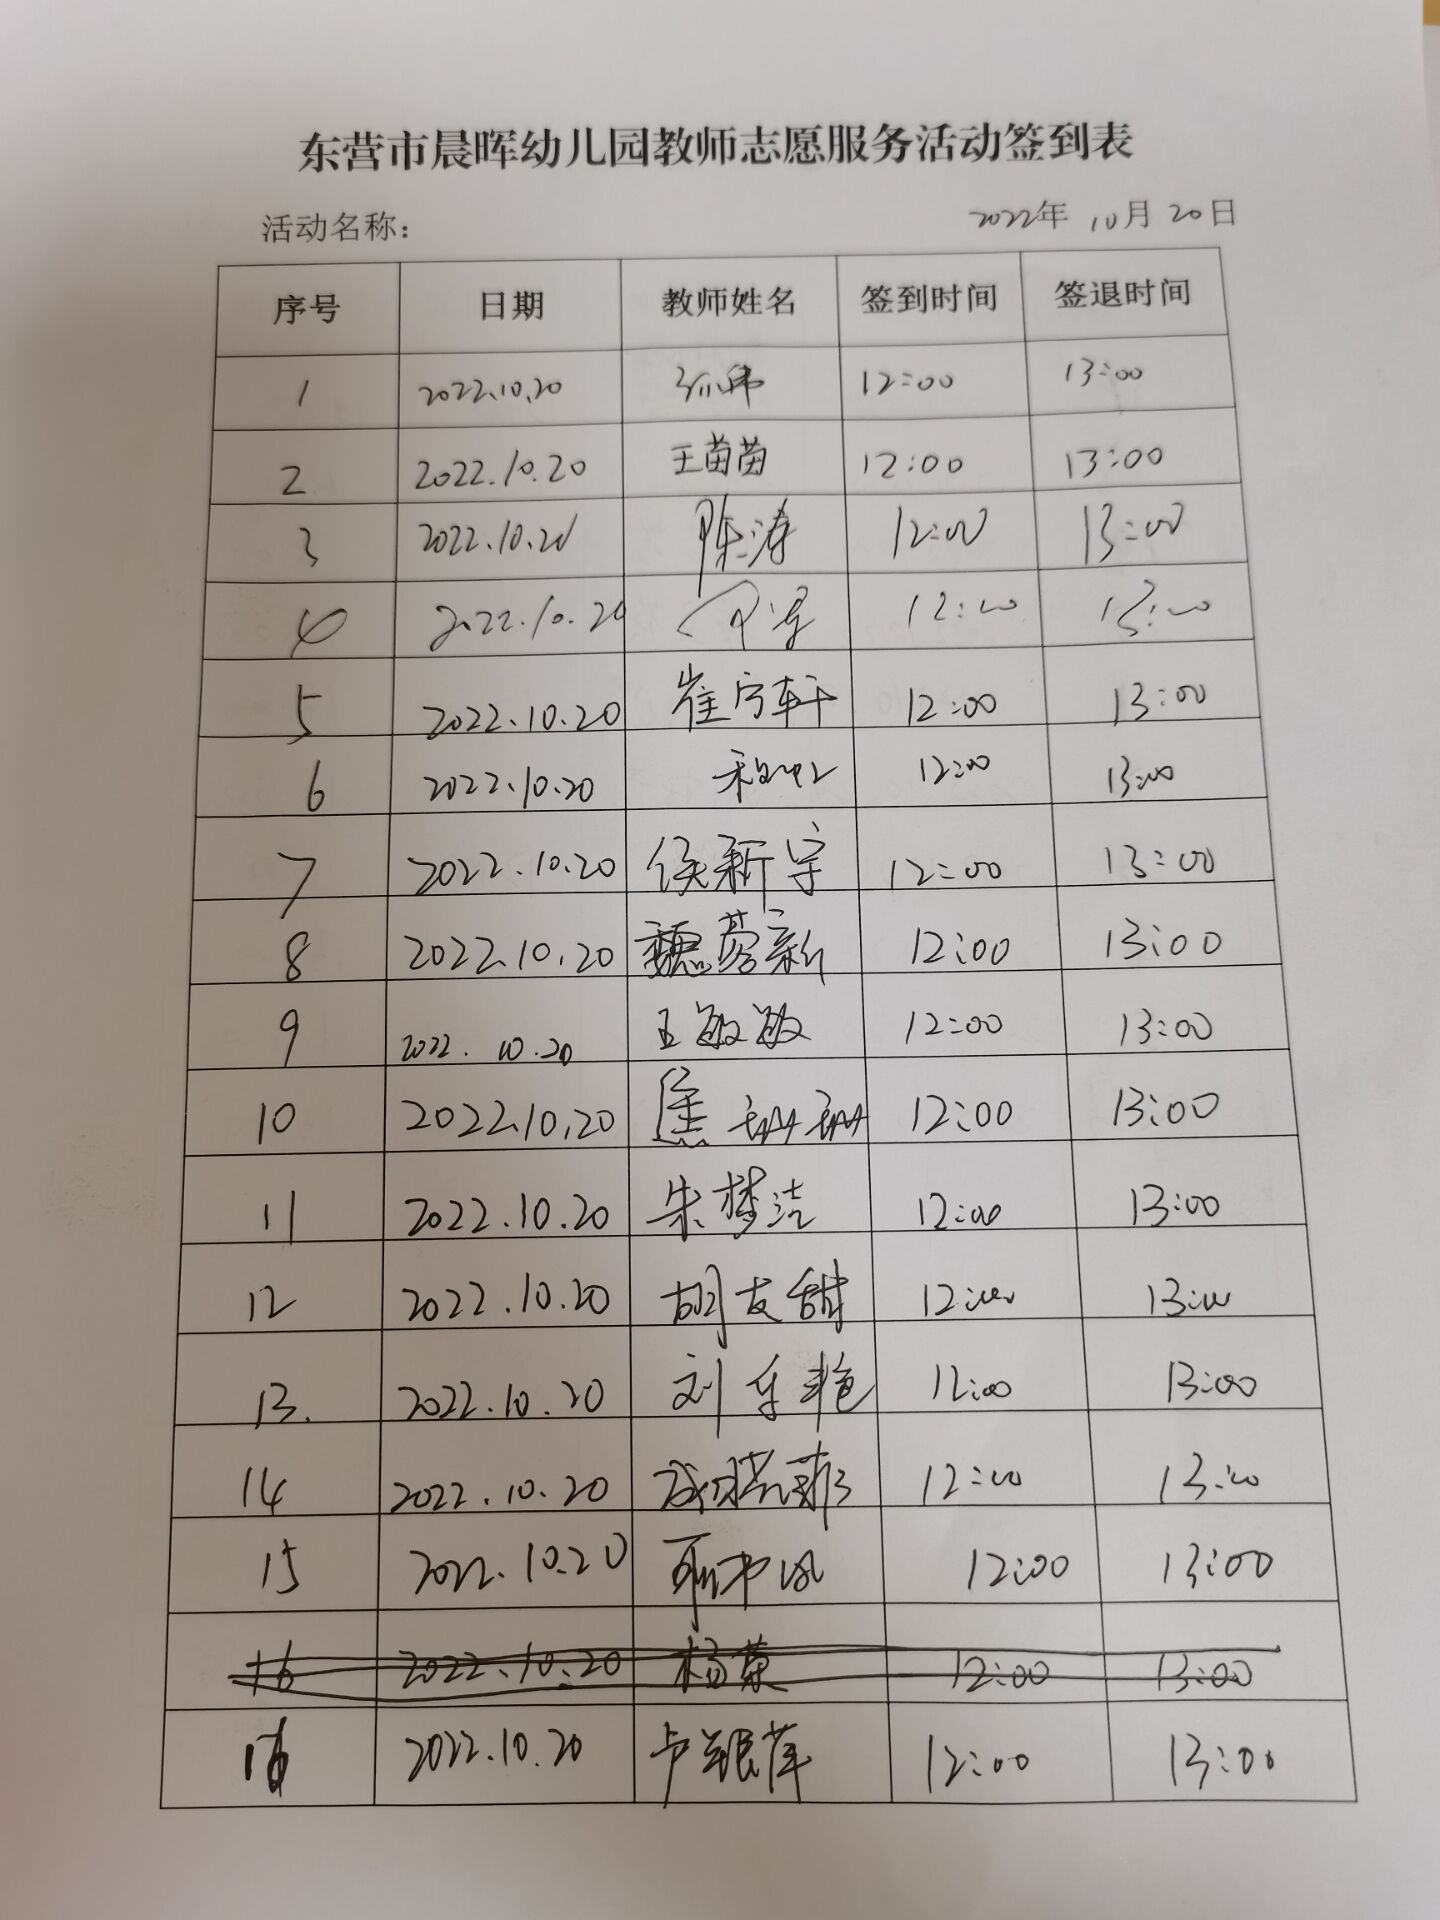 东营市晨晖幼儿园教师志愿服务活动签到表
活动名称： 2022年 10月 20日
序号 日期 教师姓名 签到时间 签退时间
1 2022.10.20 孙伟 12:00 13:00
2 2022.10.20 王苗苗 12:00 13:00
3 2022.10.20 陈涛 12:00 13:00
4 2022.10.20 12:00 13:00
5 2022.10.20 崔宁轩 12:00 13:00
6 2022.10.20 12:00 13:00
7 2022.10.20 侯新宇 12:00 13:00
8 2022.10.20 魏蒙新 12:00 13:00
9 2022.10.20 王敏敏 12:00 13:00
10 2022.10.20 焦珊珊 12:00 13:00
11 2022.10.20 朱梦洁 12:00 13:00
12 2022.10.20 胡友甜 12:00 13:00
13. 2022.10.20 刘乐艳 12:00 13:00
14 2022.10.20 12:00 13:00
15 2022.10.20 12:00 13:00
16 2022.10.20 杨荣 12:00 13:00
16 2022.10.20 卢银萍 12:00 13:00